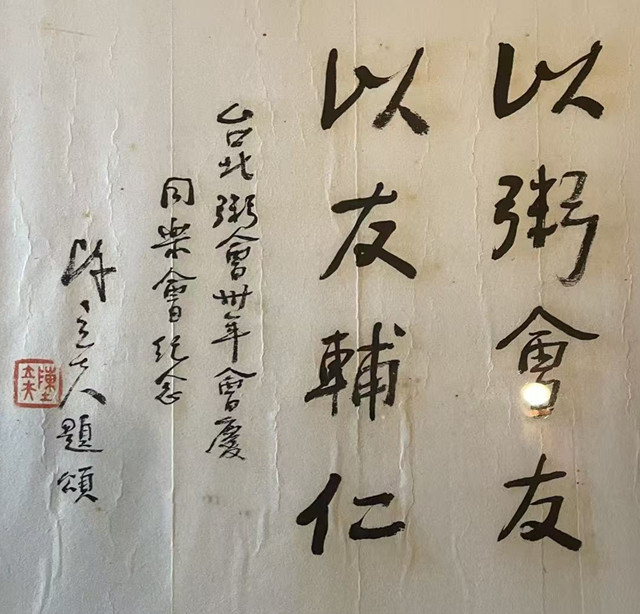 以粥會友
以友輔仁
台北粥會卅年會慶
同樂會紀念
陳立夫題頌
陳立夫